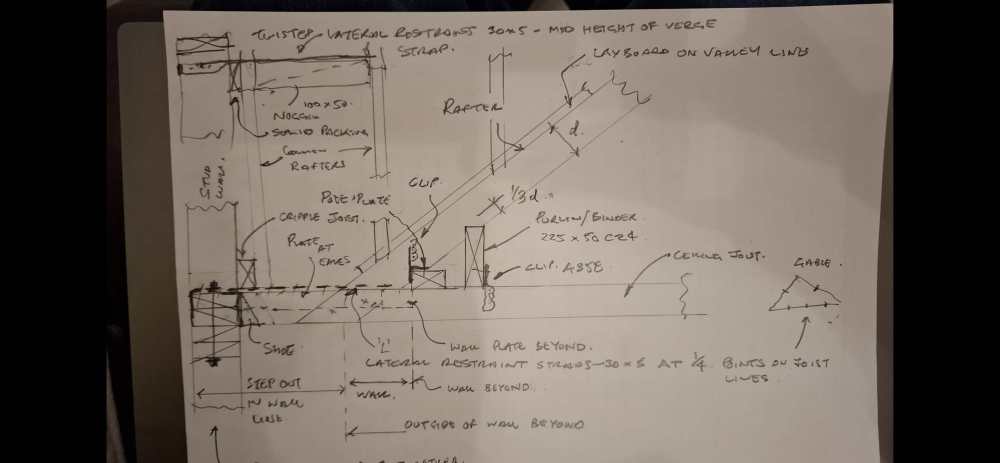 TWISTED LATERAL RESTRAINT 30x5 - MID HEIGHT OF VERGE
STRAP.
LAYBOARD ON VALLEY LINE
100x50.
NOGGIN
SOLID PACKING
RAFTER
d.
COMMON
RAFTERS
STUD
WALL.
CLIP.
1/3 d.
POLE PLATE
CRIPPLE JOIST.
PURLIN/BINDER
225 x 50 C24
PLATE
AT
EAVES
CEILING JOIST.
GABLE.
CLIP A35E
SHOE
'L'
WALL PLATE BEYOND.
LATERAL RESTRAINT STRAPS - 30x5 AT 1/4 POINTS ON JOIST
LINES
STEP OUT
IN WALL
WALL.
WALL BEYOND.
OUTSIDE OF WALL BEYOND